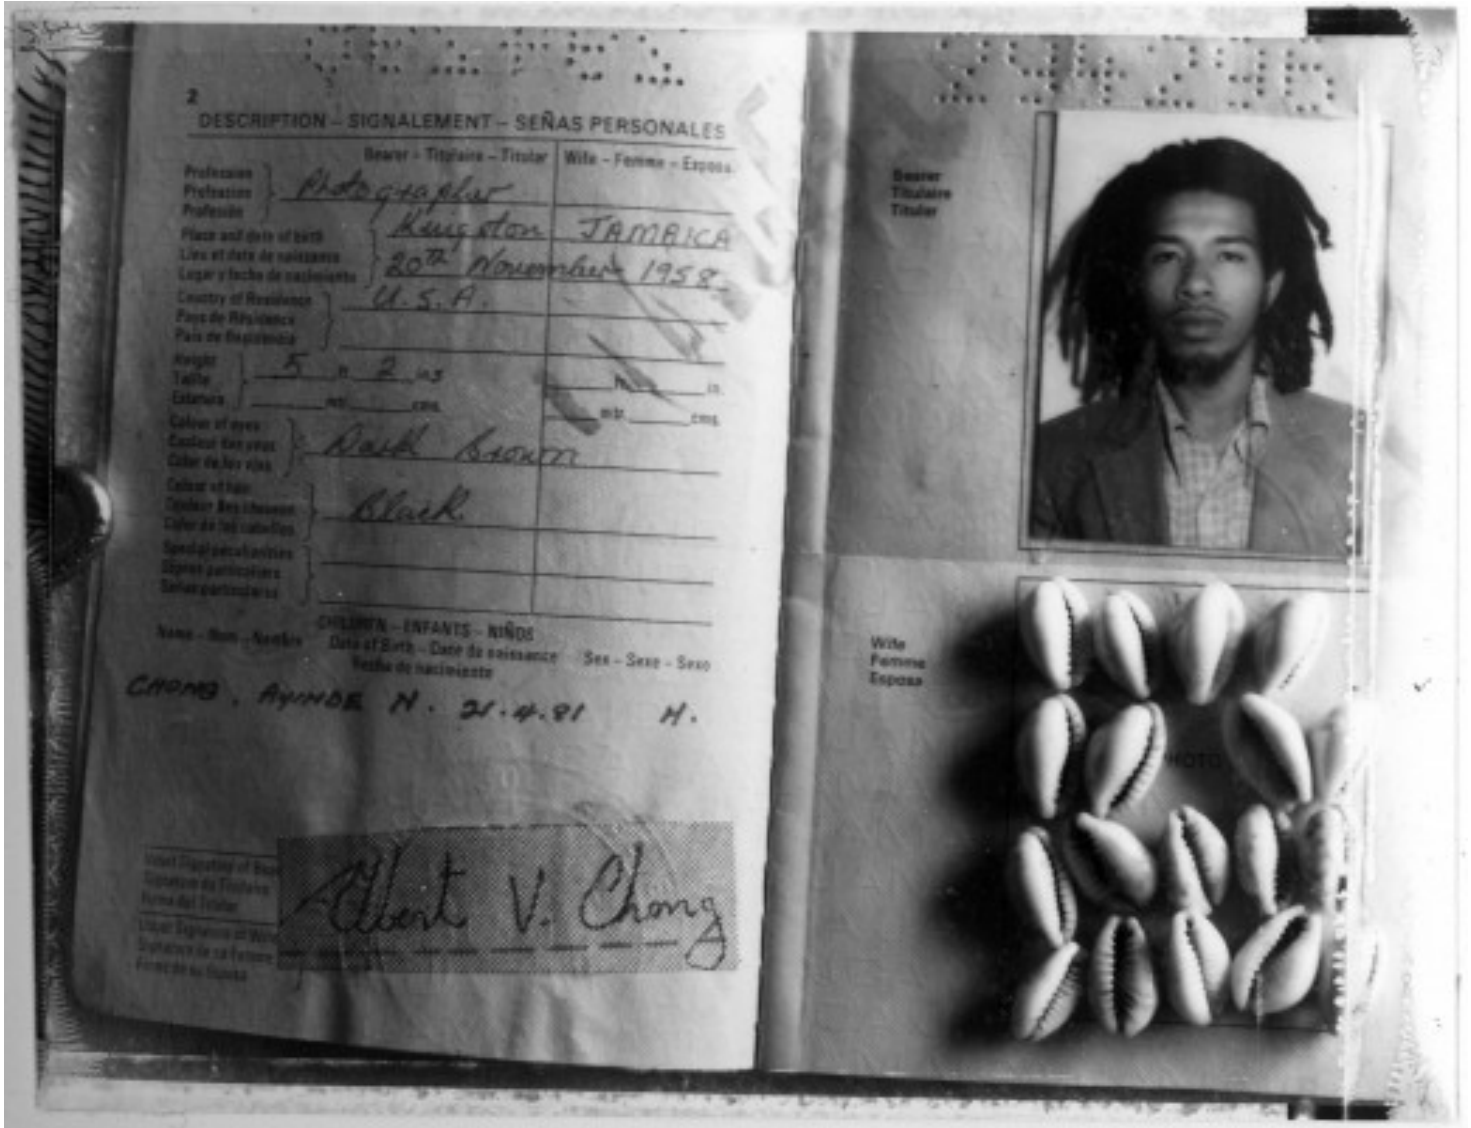 294296
2
DESCRIPTION – SIGNALEMENT – SEÑAS PERSONALES
Bearer – Titulaire – Titular Wife – Femme – Esposa
Profession
Profession
Profesión
Photographer
Place and date of birth
Lieu et date de naissance
Lugar y fecha de nacimiento
Kingston JAMAICA
20th November 1958
Country of Residence
Pays de Résidence
País de Residencia
U.S.A.
Height
Taille
Estatura
5 ft 2 ins
ft. in.
mtr. cms.
mtr. cms.
Colour of eyes
Couleur des yeux
Color de los ojos
Dark Brown
Colour of hair
Couleur des cheveux
Color de los cabellos
Black
Special peculiarities
Signes particuliers
Señas particulares
CHILDREN – ENFANTS – NIÑOS
Name – Nom – Nombre Date of Birth – Date de naissance Sex – Sexe – Sexo
Fecha de nacimiento
CHONG, AYINDE N. 21.4.81 M.
Usual Signature of
Signature du Titulaire
Firma del Titular
Usual Signature of Wife
Signature de sa Femme
Firma de su Esposa
Albert V. Chong
Bearer
Titulaire
Titular
Wife
Femme
Esposa
PHOTO